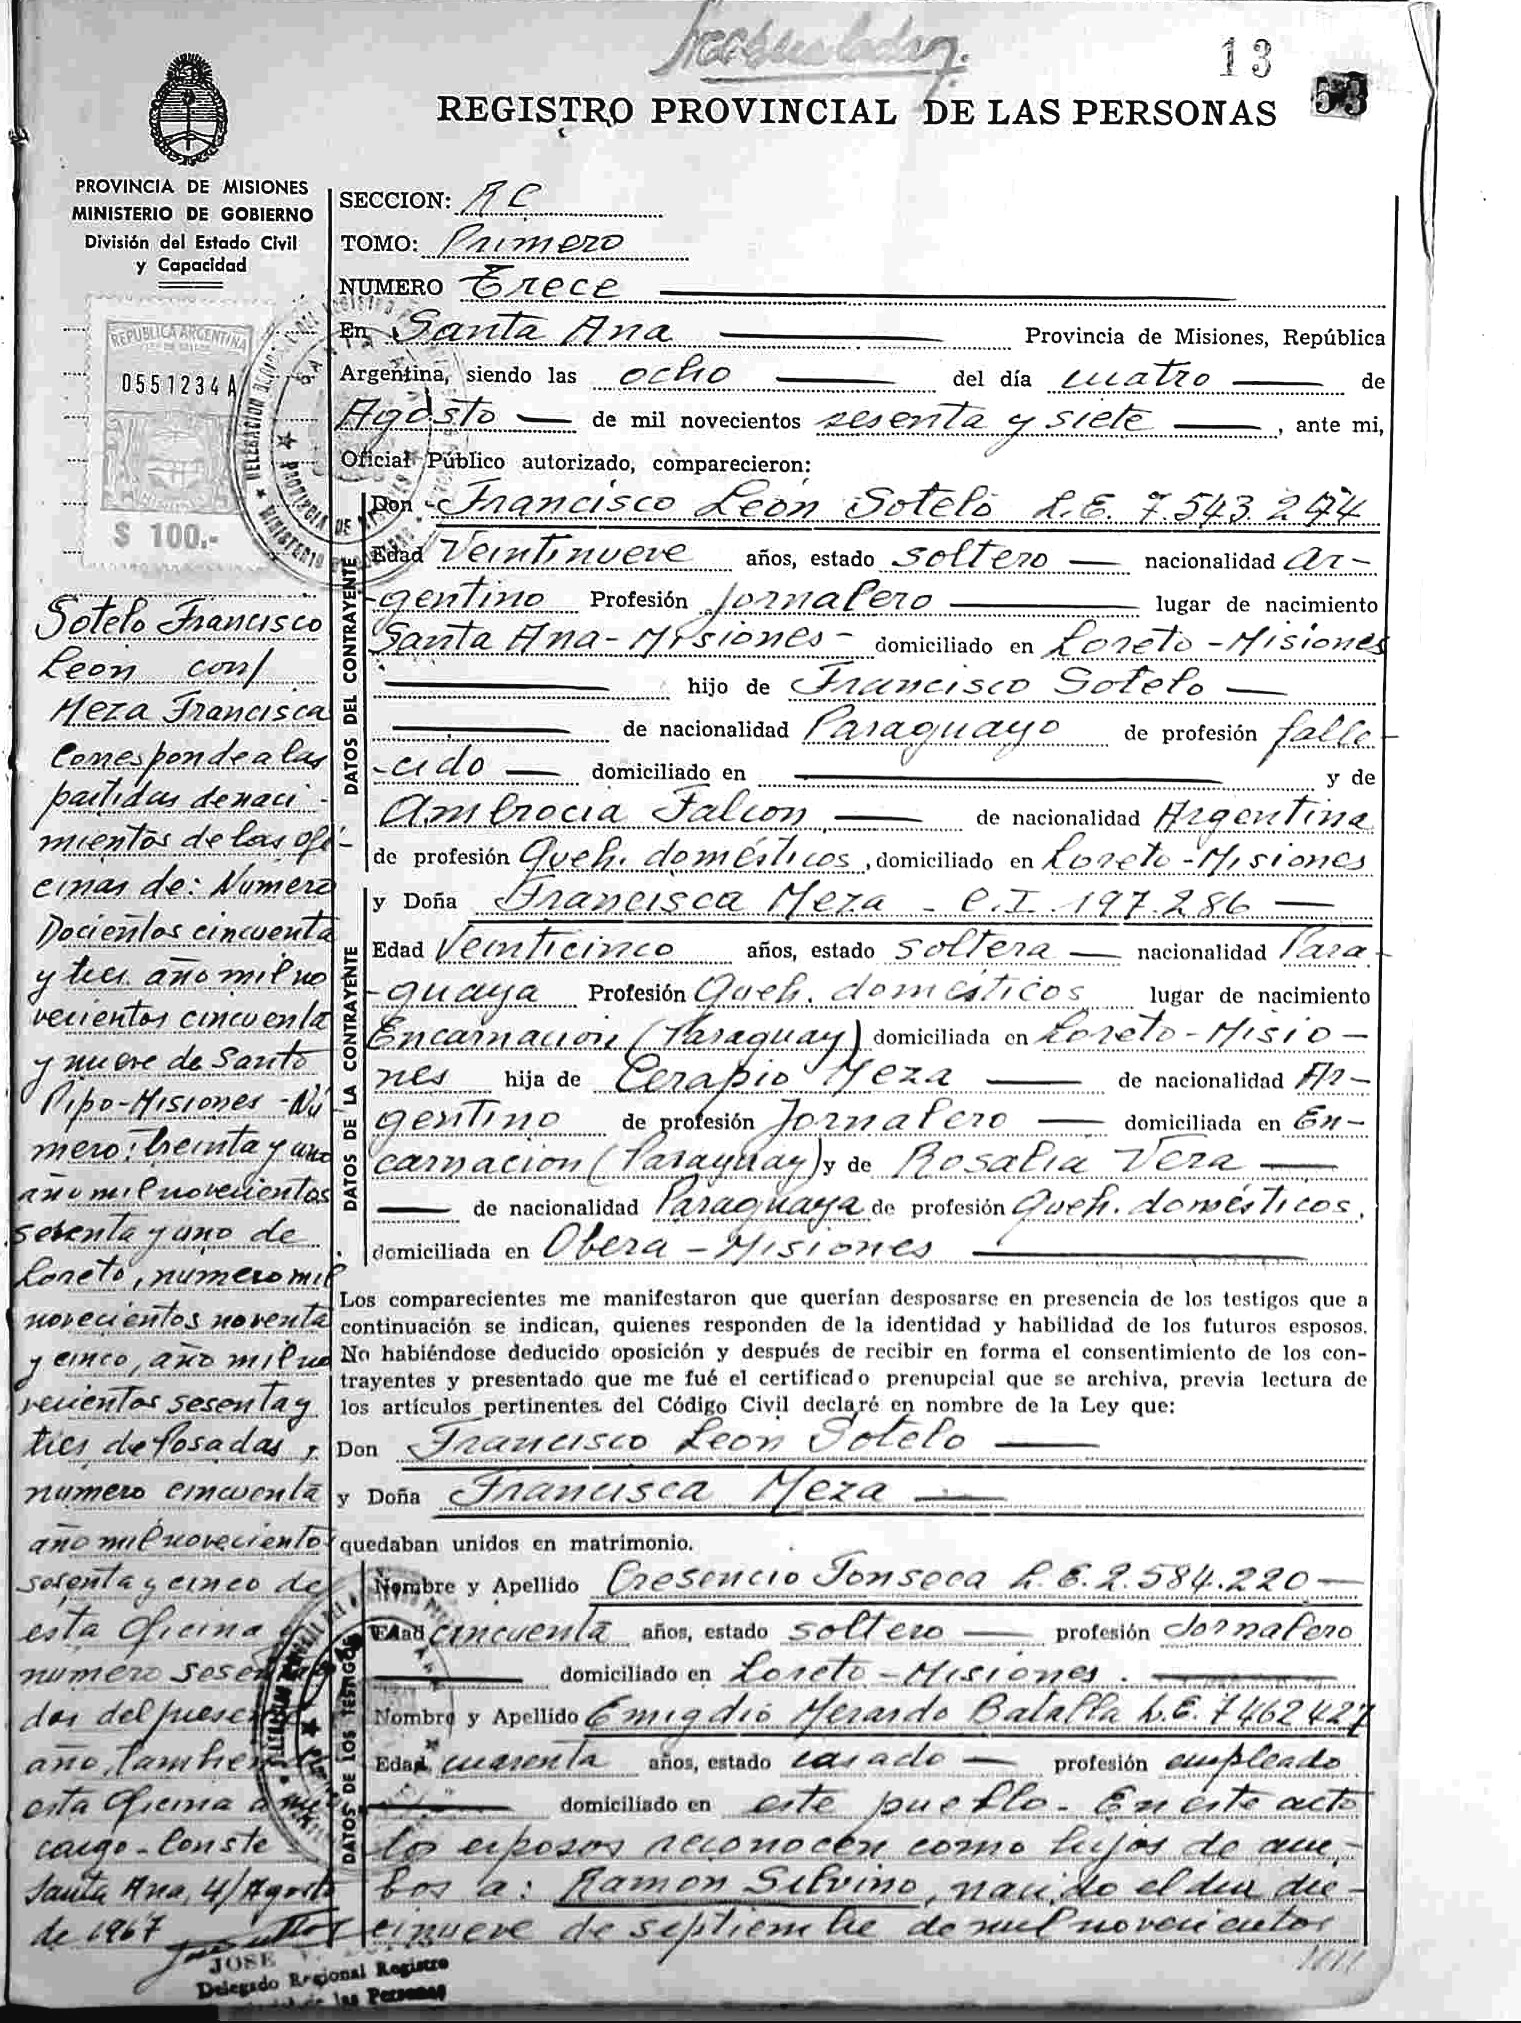 13
53
REGISTRO PROVINCIAL DE LAS PERSONAS
PROVINCIA DE MISIONES
MINISTERIO DE GOBIERNO
División del Estado Civil
y Capacidad
REPUBLICA ARGENTINA
0551234 A
$ 100.-
Sotelo Francisco
Leon con/
Meza Francisca
Corresponde a las
partidas de naci-
mientos de las ofi-
cinas de: Numero
Docientos cincuenta
y tres año mil no
vecientos cincuenta
y nueve de Santo
Pipo-Misiones - Nú
mero: treinta y uno
año mil novecientos
sesenta y uno de
Loreto, numero mil
novecientos noventa
y cinco, año mil no
vecientos sesenta y
tres de Posadas,
numero cincuenta
año mil noveciento
sesenta y cinco de
esta Oficina y
numero sesen
dos del presen
año, tambien
esta Oficina a mi
cargo - Conste
Santa Ana, 4/Agosto
de 1967
JOSE
Delegado Regional Registro
de las Personas
SECCION: R C
TOMO: Primero
NUMERO Trece
En Santa Ana Provincia de Misiones, República
Argentina, siendo las ocho del día cuatro de
Agosto de mil novecientos sesenta y siete, ante mi,
Oficial Público autorizado, comparecieron:
DATOS DEL CONTRAYENTE
Don Francisco León Sotelo L.E. 7.543.274
Edad Veintinueve años, estado soltero nacionalidad Ar-
gentino Profesión Jornalero lugar de nacimiento
Santa Ana-Misiones- domiciliado en Loreto-Misiones
hijo de Francisco Sotelo
de nacionalidad Paraguayo de profesión falle-
-cido domiciliado en y de
Ambrocia Falcon de nacionalidad Argentina
de profesión Queh. domésticos, domiciliado en Loreto-Misiones
DATOS DE LA CONTRAYENTE
y Doña Francisca Meza - C.I. 197.286
Edad Veinticinco años, estado soltera nacionalidad Para-
-guaya Profesión Queh. domésticos lugar de nacimiento
Encarnación (Paraguay) domiciliada en Loreto-Misio-
nes hija de Cerapio Meza de nacionalidad Ar-
gentino de profesión Jornalero domiciliado en En-
carnacion (Paraguay) y de Rosalia Vera
de nacionalidad Paraguaya de profesión Queh. domésticos.
domiciliada en Obera - Misiones
Los comparecientes me manifestaron que querían desposarse en presencia de los testigos que a
continuación se indican, quienes responden de la identidad y habilidad de los futuros esposos.
No habiéndose deducido oposición y después de recibir en forma el consentimiento de los con-
trayentes y presentado que me fué el certificado prenupcial que se archiva, previa lectura de
los artículos pertinentes del Código Civil declaré en nombre de la Ley que:
Don Francisco Leon Sotelo
y Doña Francisca Meza
quedaban unidos en matrimonio.
DATOS DE LOS TESTIGOS
Nombre y Apellido Cresencio Fonseca L.E. 2.584.220
Edad cincuenta años, estado soltero profesión Jornalero
domiciliado en Loreto-Misiones.
Nombre y Apellido Emigdio Merardo Batalla L.E. 7462427
Edad cuarenta años, estado casado profesión empleado
domiciliado en este pueblo - En este acto
los esposos reconocen como hijos de am-
bos a: Ramon Silvino, nacido el dia die-
cinueve de septiembre de mil novecientos